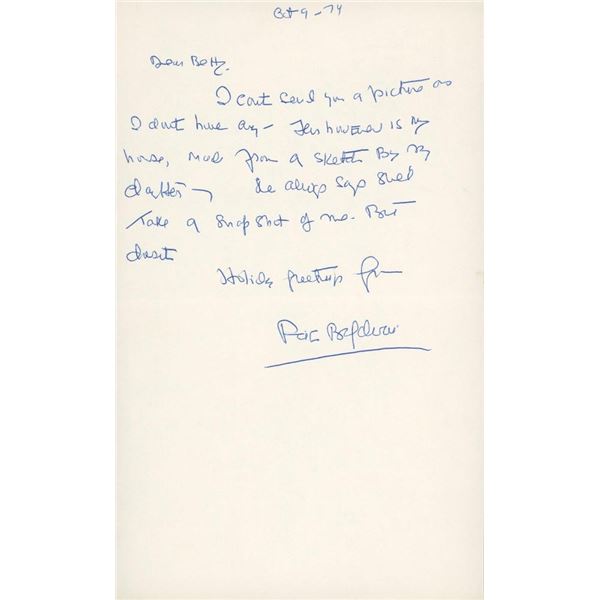 Oct 9 - 74
Dear Betty.
I cant send you a picture as
I dont have any - This however is my
house, made from a sketch By my
daughter - She always says shell
Take a snapshot of me. But
doesnt
Holiday greetings from
Faith Baldwin